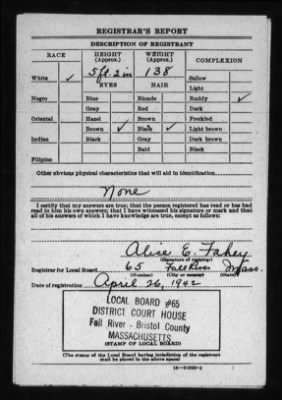 REGISTRAR'S REPORT
DESCRIPTION OF REGISTRANT
RACE HEIGHT (Approx.) WEIGHT (Approx.) COMPLEXION
5 ft. 2 in 138
White ✓ Sallow
EYES HAIR Light
Negro Blue Blonde Ruddy ✓
Gray Red Dark
Oriental Hazel Brown Freckled
Brown ✓ Black ✓ Light brown
Indian Black Gray Dark brown
Bald Black
Filipino
Other obvious physical characteristics that will aid in identification
None
I certify that my answers are true; that the person registered has read or has had
read to him his own answers; that I have witnessed his signature or mark and that
all of his answers of which I have knowledge are true, except as follows:
Alice E. Fahey
(Signature of registrar)
Registrar for Local Board 65 Fall River Mass.
(Number) (City or county) (State)
Date of registration April 26, 1942
LOCAL BOARD #65
DISTRICT COURT HOUSE
Fall River - Bristol County
MASSACHUSETTS
(STAMP OF LOCAL BOARD)
(The stamp of the Local Board having jurisdiction of the registrant
shall be placed in the above space)